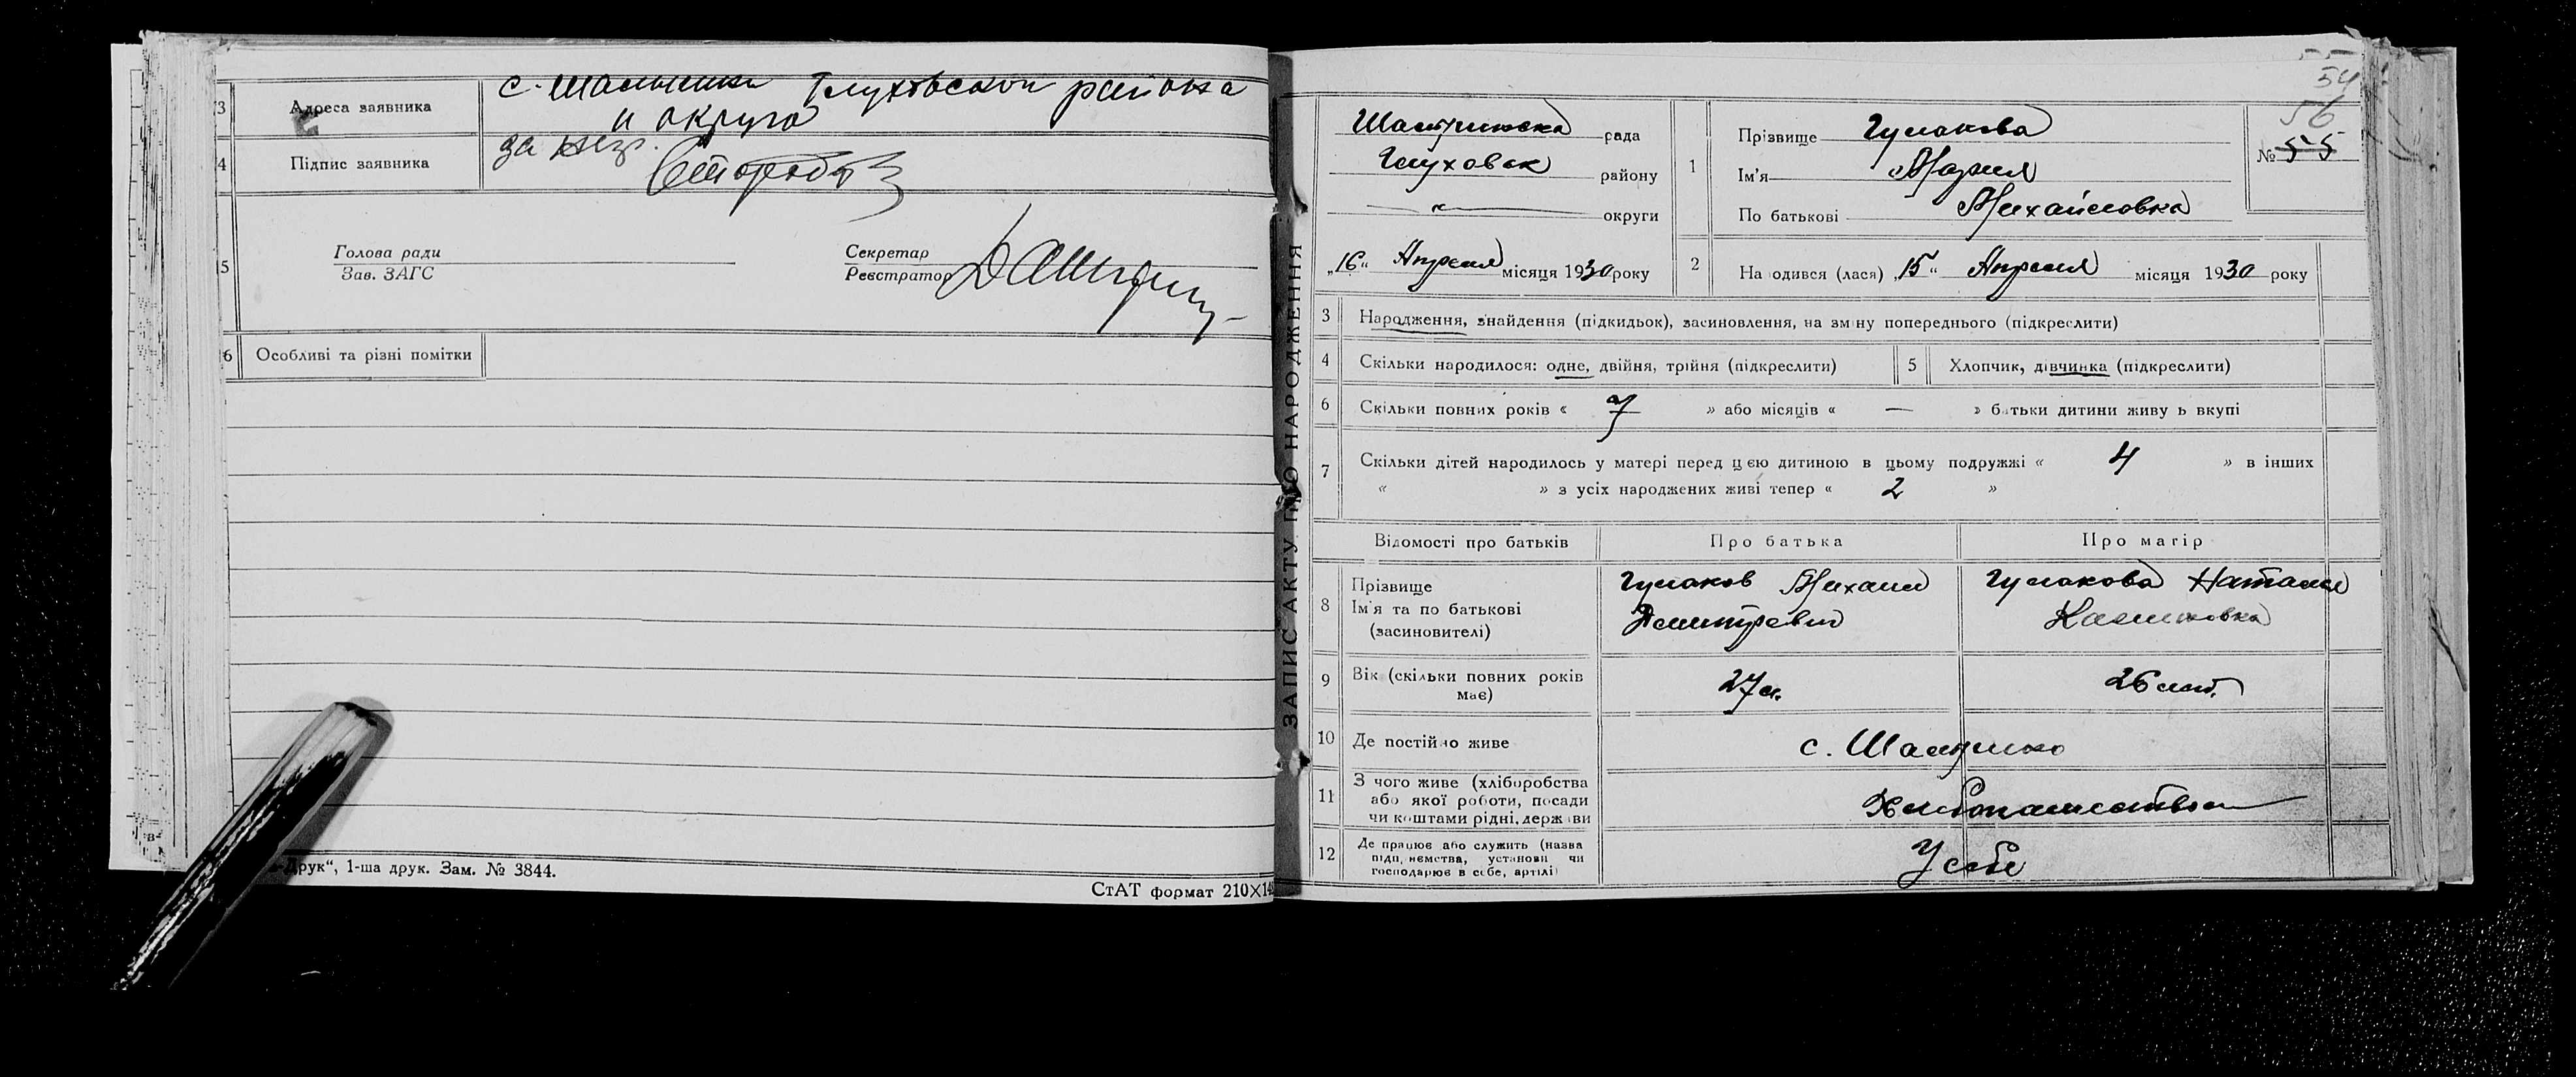 3 Адреса заявника
с. Шалыгина Глуховской района
и округа
4 Підпис заявника
за негр.
5 Голова ради
Зав. ЗАГС
Секретар
Реєстратор
6 Особливі та різні помітки
Друк“, 1-ша друк. Зам. № 3844.
СтАТ формат 210×14
ЗАПИС АКТУ ПРО НАРОДЖЕННЯ
55
54
56
№ 55
рада
Глуховск району
— „ — округи
„16“ Апреля місяця 1930 року
1 Прізвище Гулакова
Ім’я Мария
По батькові Михайловна
2 Народився (лася) „15“ Апреля місяця 1930 року
3 Народження, знайдення (підкидьок), засиновлення, на зміну попереднього (підкреслити)
4 Скільки народилося: одне, двійня, трійня (підкреслити) 5 Хлопчик, дівчинка (підкреслити)
6 Скільки повних років « 7 » або місяців « — » батьки дитини живуть вкупі
7 Скільки дітей народилось у матері перед цією дитиною в цьому подружжі « 4 » в інших
« » з усіх народжених живі тепер « 2 »
Відомості про батьків Про батька Про матір
8 Прізвище
Ім’я та по батькові
(засиновителі)
Гулаков Михаил
Дмитревич
Гулакова Наталья
9 Вік (скільки повних років
має)
27 л.
26 лет.
10 Де постійно живе
с.
11 З чого живе (хліборобства
або якої роботи, посади
чи коштами рідні, держави
Хлебопашеством
12 Де працює або служить (назва
підприємства, установи чи
господарює в себе, артілі)
У себе